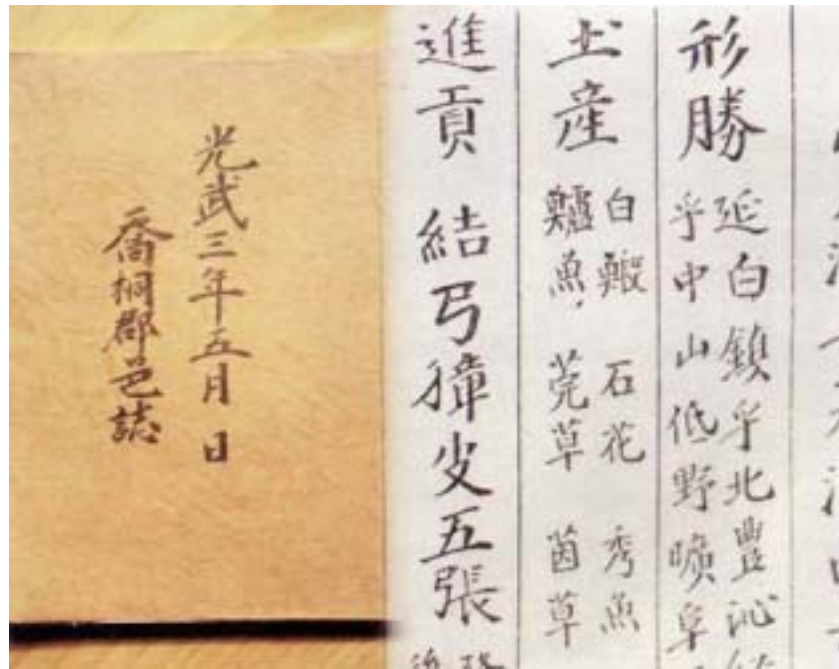 光武三年五月 日
喬桐郡邑誌
形勝
延白鎮乎北豊沁
乎中山低野曠阜
土産
白鰕 石花 秀魚
鱸魚 莞草 茵草
進貢 結弓獐皮五張